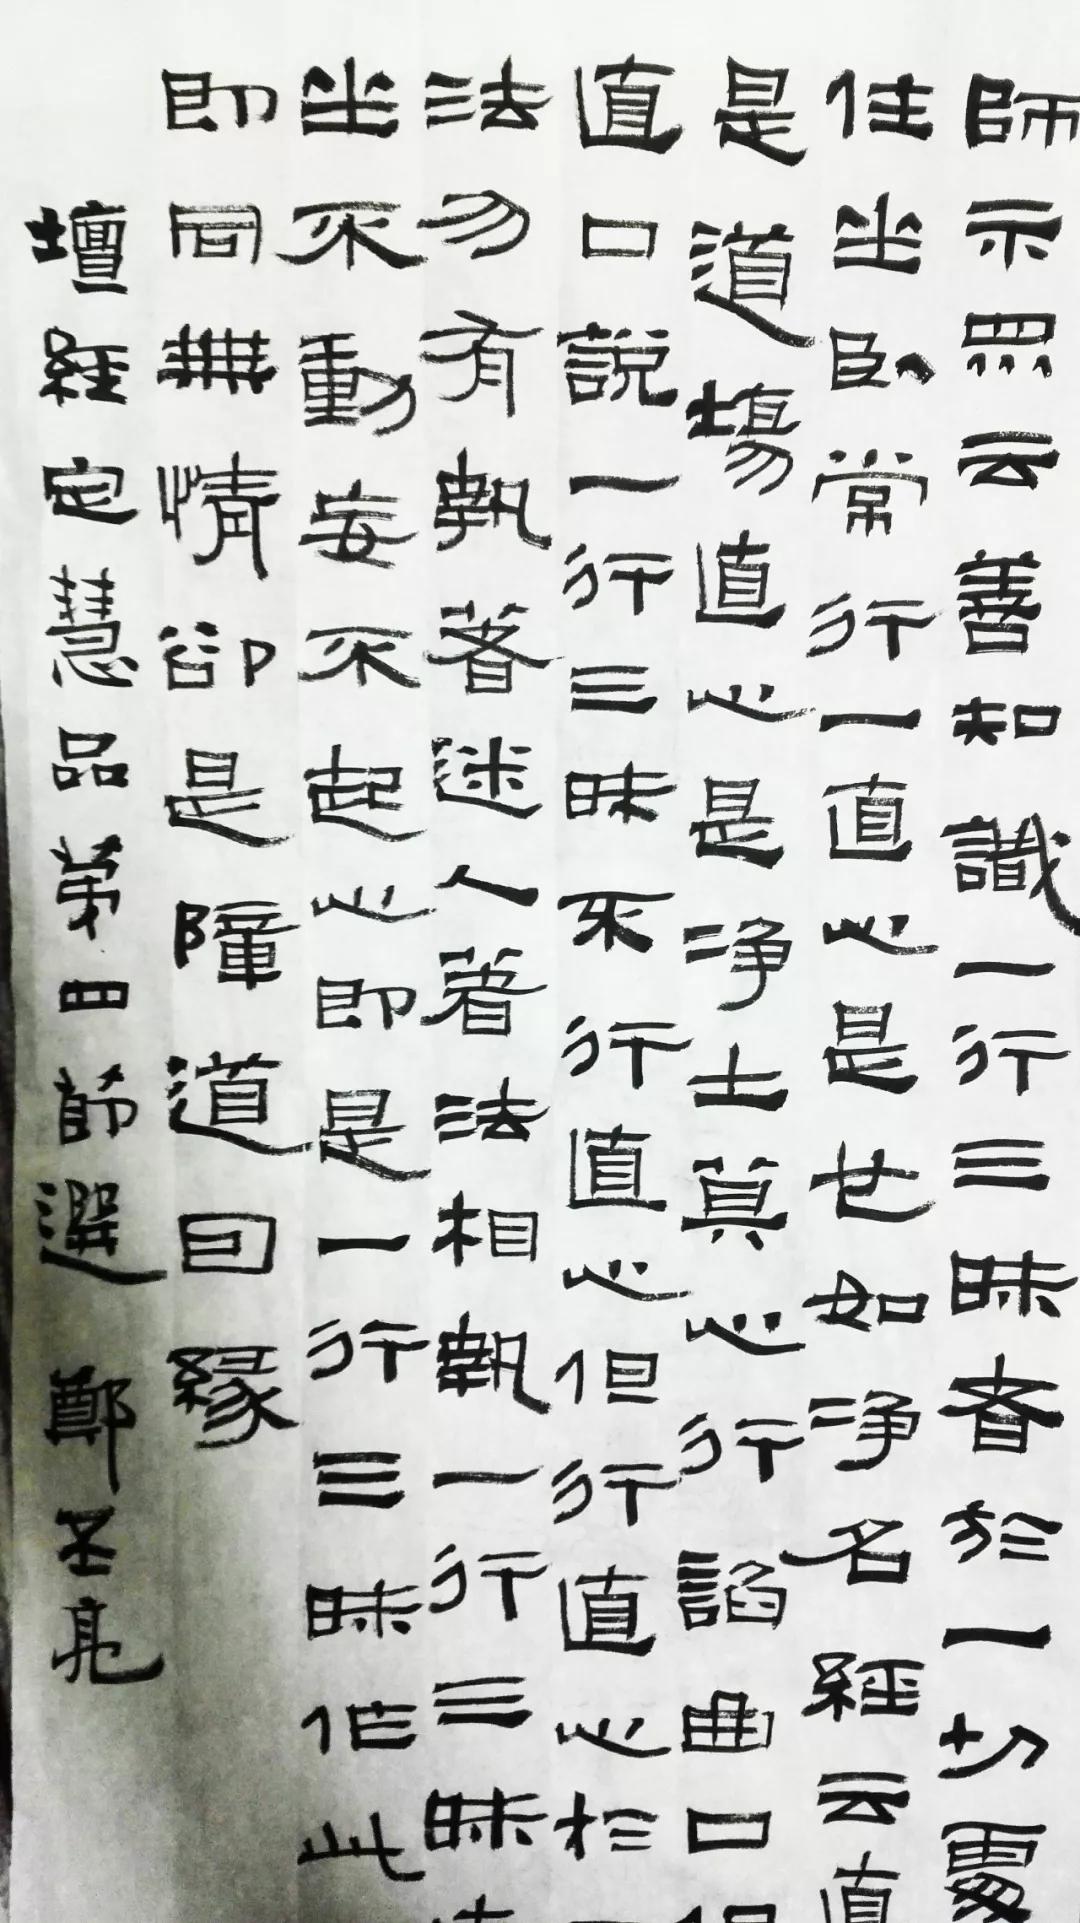 師示眾云善知識一行三昧者於一切處
住坐臥常行一直心是世如净名經云直
是道場直心是净土莫心行諂曲口但
直口說一行三昧不行直心但行直心於一
法勿有執著迷人著法相執一行三昧直
坐不動妄不起心即是一行三昧作此
即同無情卻是障道因緣
壇經定慧品第四節選 鄭圣亮